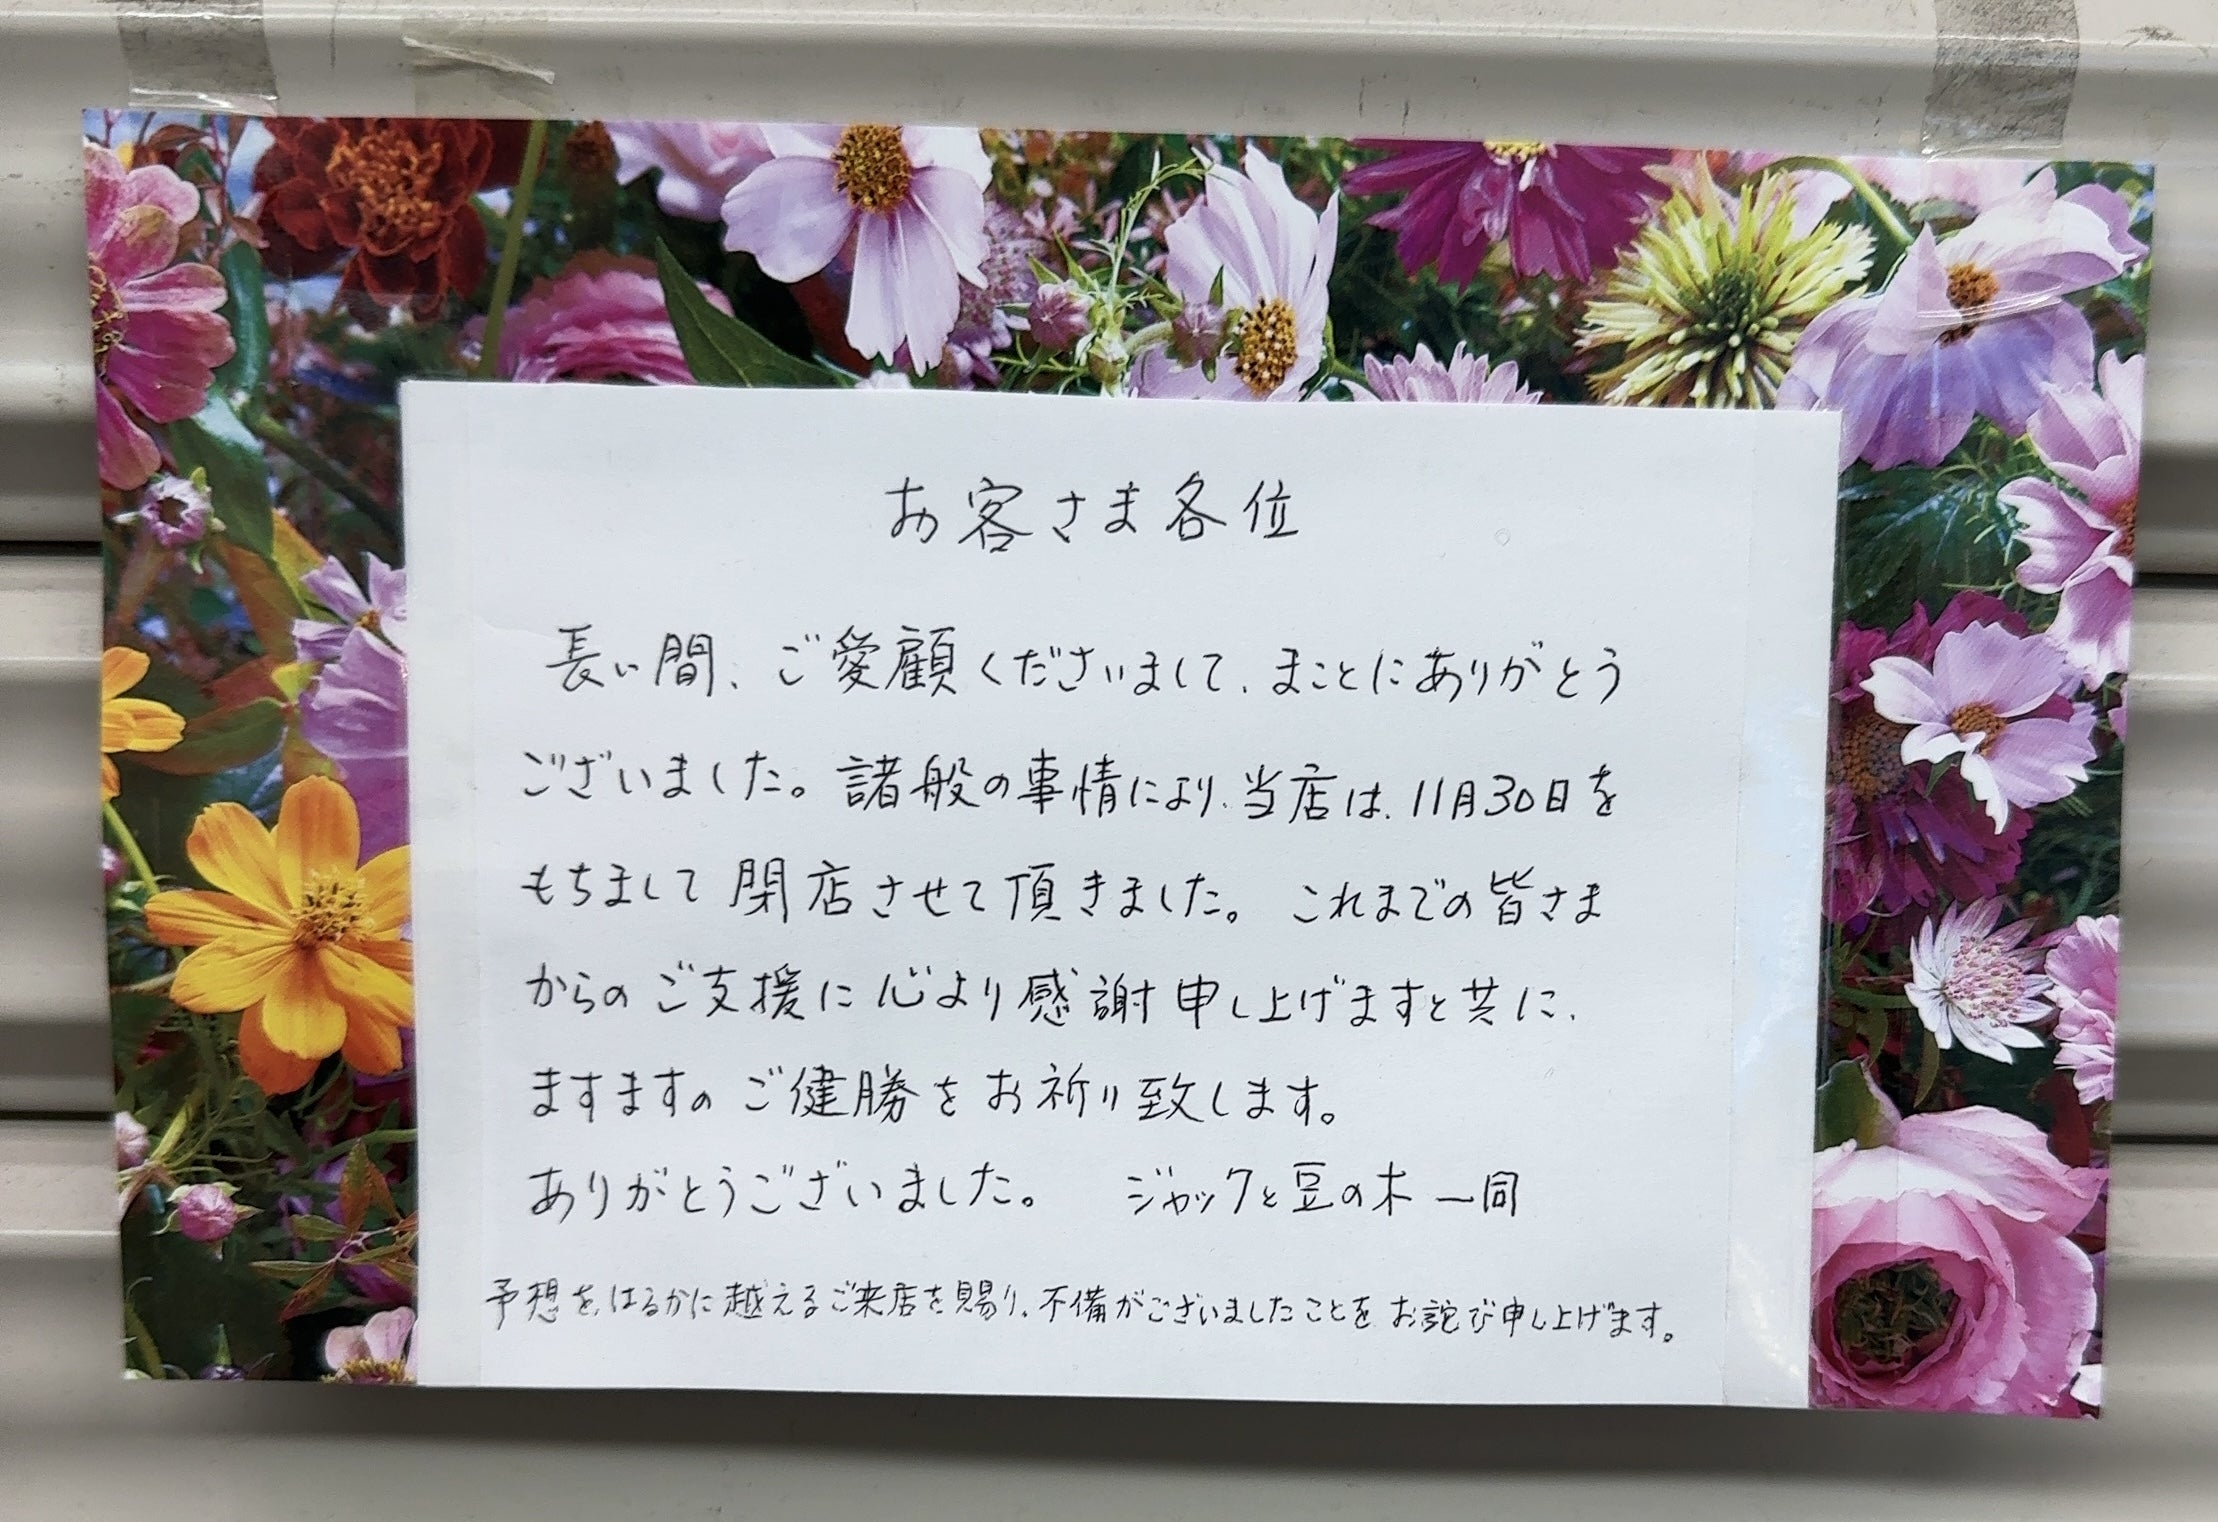 お客さま各位
長い間、ご愛顧くださいまして、まことにありがとう
ございました。諸般の事情により、当店は、11月30日を
もちまして閉店させて頂きました。これまでの皆さま
からのご支援に心より感謝申し上げますと共に、
ますますのご健勝をお祈り致します。
ありがとうございました。 ジャックと豆の木 一同
予想を、はるかに越えるご来店を賜り、不備がございましたことをお詫び申し上げます。